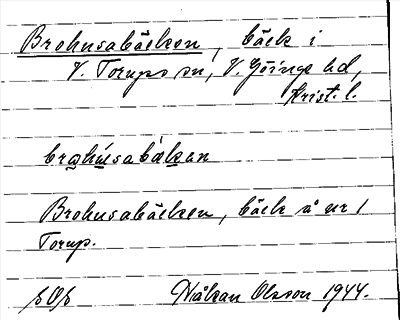 Brohusabäcken, bäck i
V. Torups sn, V. Göinge hd,
Krist. l.
brohúsabäkan
Brohusabäcken, bäck å nr 1
Torup.
Håkan Olsson 1944.